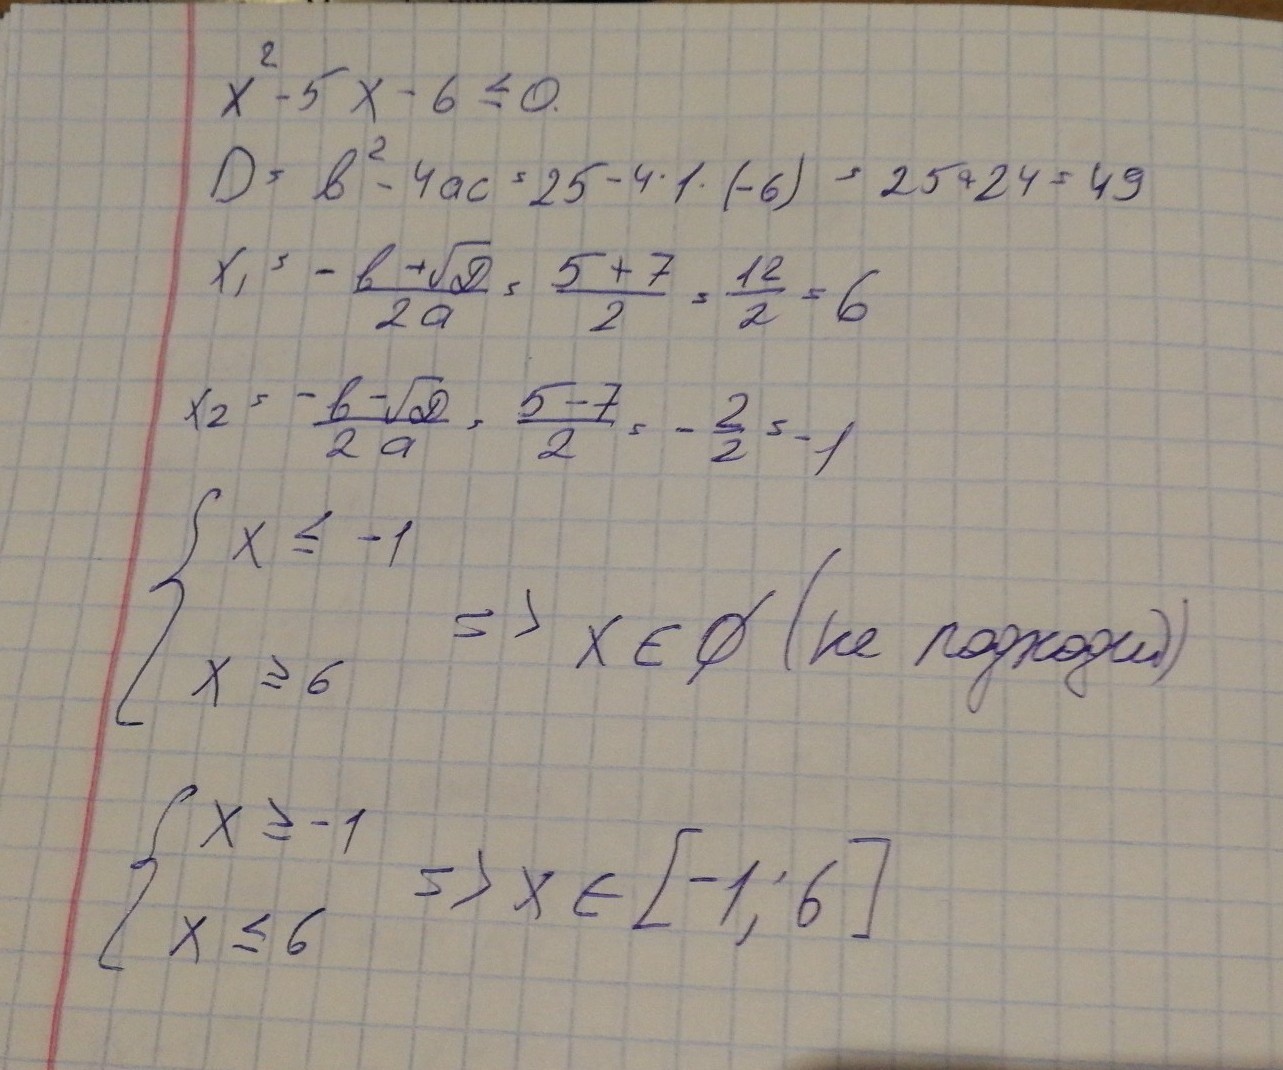 x² - 5x - 6 ≤ 0.
D = b² - 4ac = 25 - 4·1·(-6) = 25 + 24 = 49
x₁ = -b + √D / 2a = 5 + 7 / 2 = 12 / 2 = 6
x₂ = -b - √D / 2a = 5 - 7 / 2 = - 2 / 2 = -1
{ x ≤ -1
x ≥ 6
=> x ∈ ∅ (не подходит)
{ x ≥ -1
x ≤ 6
=> x ∈ [-1; 6]